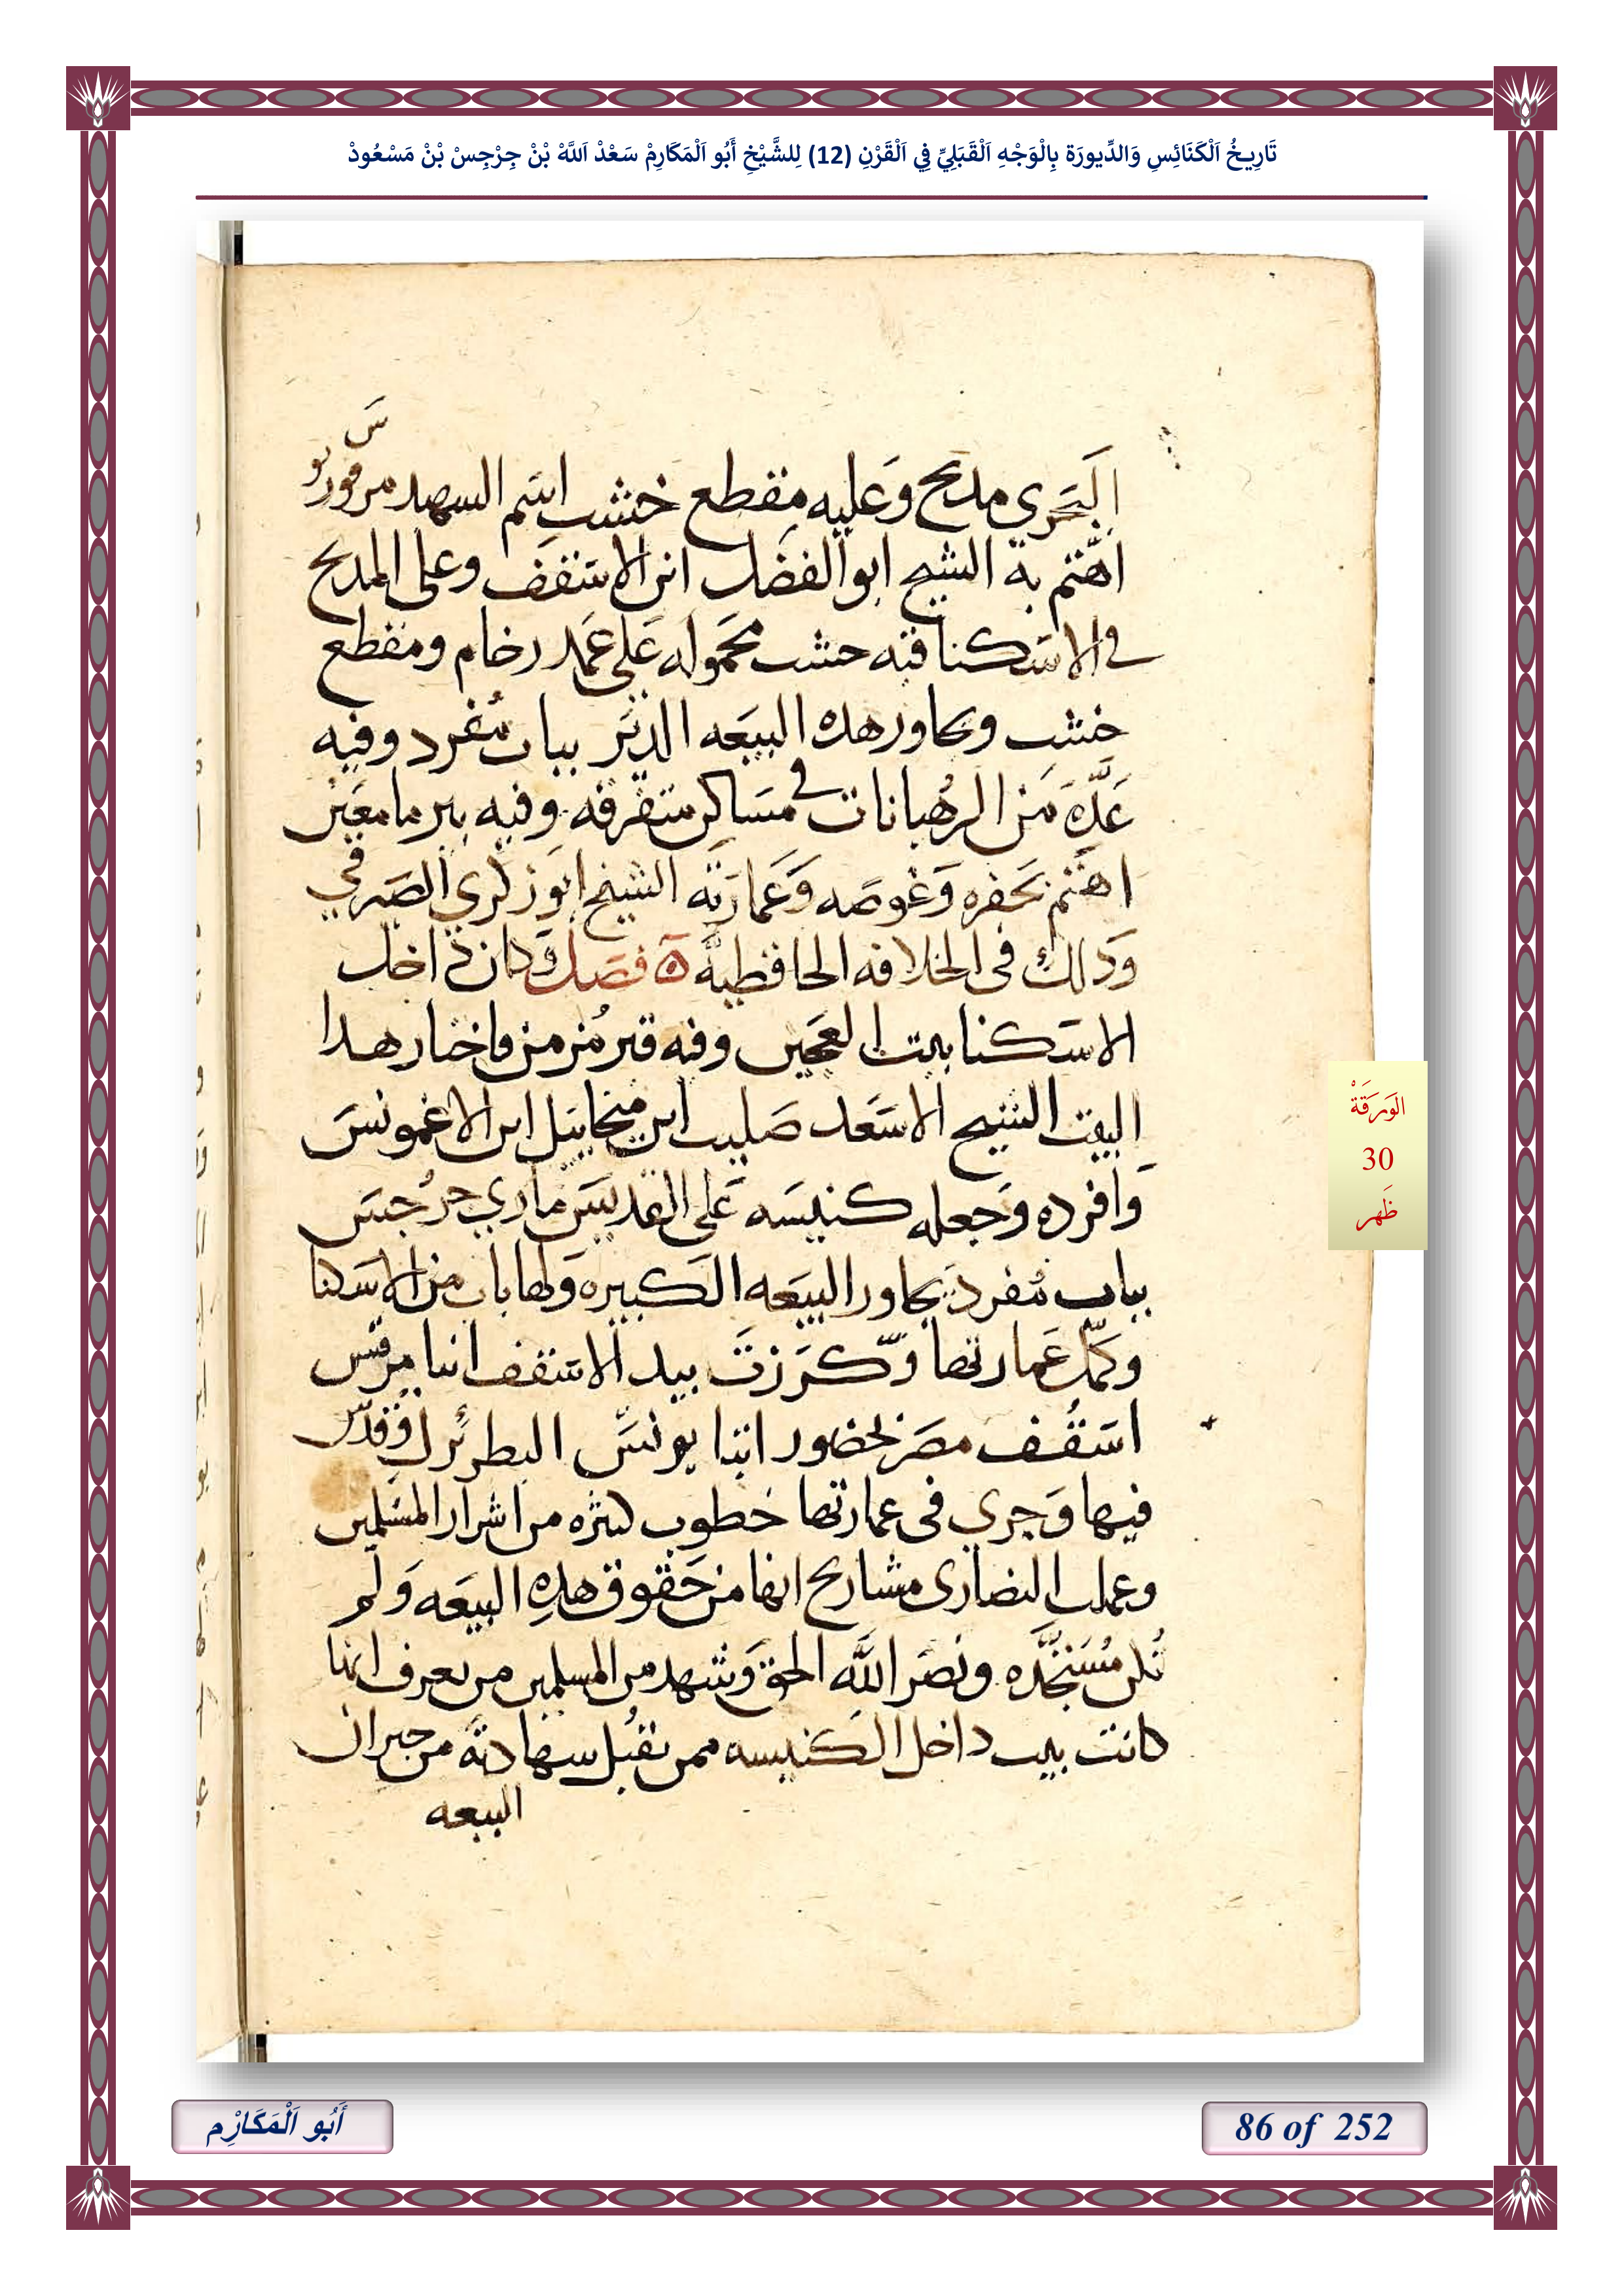 تَارِيخُ اَلْكَنَائِسِ وَالدِّيورَة بِالْوَجْهِ اَلْقَبَلِيِّ فِي اَلْقَرْنِ (12) لِلشَّيْخِ أَبُو اَلْمَكَارِمْ سَعْدْ اَللَّهْ بْنْ جِرْجِسْ بْنْ مَسْعُودْ
البَحَرى مدبح وَعليه مقطع خشب اسَم السهيد مرقوريوس
اهَتم به الشيخ ابو الفضل ابن الاسَقف وعلى المدبح
فى الاسَكنا قبه خشب محَموله عَلى عَمَد رخام ومقطع
خشب ويجاور هده البيعَه الديَر بباب مُفرد وفيه
عَدَّه مَن الرهُبانات فى مَساكن متفرقه وفيه بير ما معَين
اهَتم بحَفره وَغوصَه وَعَمارَته الشيخ ابوَ زكري الصَيرفي
وَدلك فى الخلافه الحافظيه ۞ فصَل وَكان داخل
الاسَكنا بيت العَجين وفيه قبر مُزمن فاختار هدا
البيت الشيخ الاسَعَد صَليب ابن ميخاييل ابن الاغمونسَ
وَافرده وَجعله كنيسَه عَلى القديسَ ماري جرُجسَ
بباب مُفرد يجاور البيَعَه الكَبيره وَلها باب من الاسَكنا
وكمّل عَمارتها وَكَرَزتَ بيد الاسَقف انبا مرقس
اسَقُف مصَر بحَضور انبا يونسَّ البطرُيرك وَقدّس
فيها وَجري فى عمارتها خطوب كثيره من اشرار المسَلمين
وعمل النصَارى مشاريح انها من حَقوق هدِه البيعَه وَلم
تُكن مُسَتجَّده ونصَر اللَّه الحق وَشهد من المسلمين من يعرف انها
كانت بيت داخل الكَنيسه ممن تقُبل سهادته من جيران
البيعه
الوَرَقَةْ
30
ظَهر
أَبُو اَلْمَكَارِْم
86 of 252